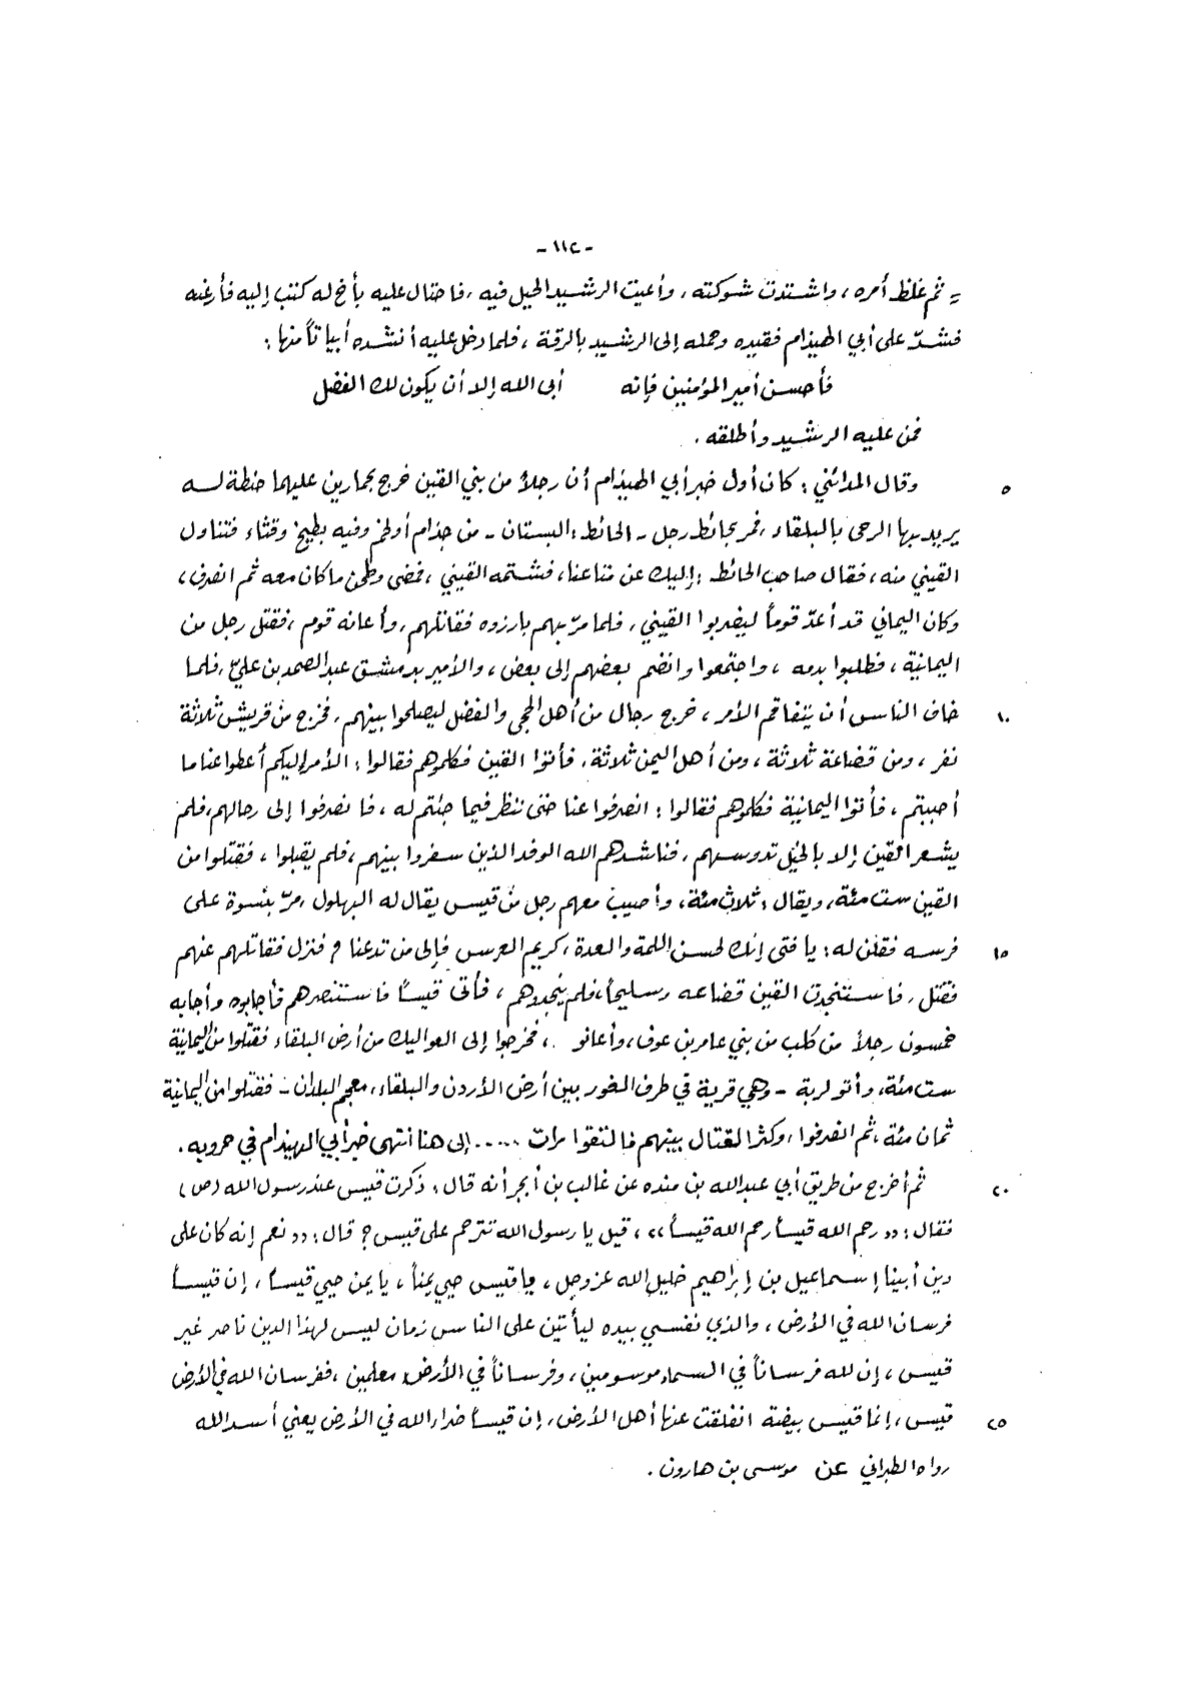 - ١١٢ -
= ثم غلظ أمره ، واشتدت شوكته ، وأعيت الرشيد الحيل فيه ، فاحتال عليه بأخ له كتب إليه فأرغبه
فشدّ على أبي الهيذام فقيده وحمله إلى الرشيد بالرقة ، فلما دخل عليه أنشده أبياتاً منها :
فأحسن أمير المؤمنين فإنه أبى الله إلا أن يكون لك الفضل
فمن عليه الرشيد وأطلقه .
٥ وقال المدائني : كان أول خبر أبي الهيذام أن رجلاً من بني القين خرج بحمارين عليهما حنطة لـه
يريد بها الرحى بالبلقاء ، فمر بحائط رجل - الحائط : البستان - من جذام أو لخم وفيه بطيخ وقثاء فتناول
القيني منه ، فقال صاحب الحائط : إليك عن متاعنا ، فشتمه القيني ، فمضى وطحن ماكان معه ثم انصرف ،
وكان اليماني قد أعدّ قوماً ليضربوا القيني ، فلما مرّ بهم بارزوه فقاتلهم ، وأعانه قوم ، فقتل رجل من
اليمانية ، فطلبوا بدمه ، واجتمعوا وانضم بعضهم إلى بعض ، والأمير بدمشق عبد الصمد بن عليّ ، فلما
١٠ خاف الناس أن يتفاقم الأمر ، خرج رجال من أهل الحجى والفضل ليصلحوا بينهم ، فخرج من قريش ثلاثة
نفر ، ومن قضاعة ثلاثة ، ومن أهل اليمن ثلاثة ، فأتوا القين فكلموهم فقالوا : الأمر إليكم أعطوا عنا ما
أحببتم ، فأتوا اليمانية فكلموهم فقالوا : انصرفوا عنا حتى ننظر فيما جئتم له ، فانصرفوا إلى رحالهم ، فلم
يشعر القين إلا بالخيل تدوسهم ، فناشدهم الله الوفد الذين سفروا بينهم ، فلم يقبلوا ، فقتلوا من
القين ست مئة ، ويقال : ثلاث مئة ، وأصيب معهم رجل من قيس يقال له البهلول ، مرّ بنسوة على
١٥ فرسه فقلن له : يا فتى إنك لحسن اللمة والعدة ، كريم الفرس فإلى من تدعنا ؟ فنزل فقاتلهم عنهم
فقتل ، فاستنجدت القين قضاعه وسليحاً ، فلم ينجدوهم ، فأتى قيساً فاستنصرهم فأجابوه وأجابه
خمسون رجلاً من كلب من بني عامر بن عوف ، وأعانو ، فخرجوا إلى العواليك من أرض البلقاء فقتلوا من اليمانية
ست مئة ، وأتو لربة - وهي قرية في طرف الغور بين أرض الأردن والبلقاء ، معجم البلدان - فقتلوا من اليمانية
ثمان مئة ، ثم انصرفوا ، وكثر القتال بينهم فالتقوا مرات ..... إلى هنا انتهى خبر أبي الهيذام في حروبه .
٢٠ ثم أخرج من طريق أبي عبد الله بن منده عن غالب بن أبجر أنه قال : ذكرت قيس عند رسول الله (ص)
فقال : «رحم الله قيساً رحم الله قيساً» ، قيل يا رسول الله تترحم على قيس ؟ قال : «نعم إنه كان على
دين أبينا إسماعيل بن إبراهيم خليل الله عز وجل ، ياقيس حيي يمناً ، يا يمن حيي قيساً ، إن قيساً
فرسان الله في الأرض ، والذي نفسي بيده ليأتين على الناس زمان ليس لهذا الدين ناصر غير
قيس ، إن لله فرساناً في السماء موسومين ، وفرساناً في الأرض معلمين ، ففرسان الله في الأرض
٢٥ قيس ، إنما قيس بيضة انفلقت عنها أهل الأرض ، إن قيساً ضراء الله في الأرض يعني أسد الله
رواه الطبراني عن موسى بن هارون .